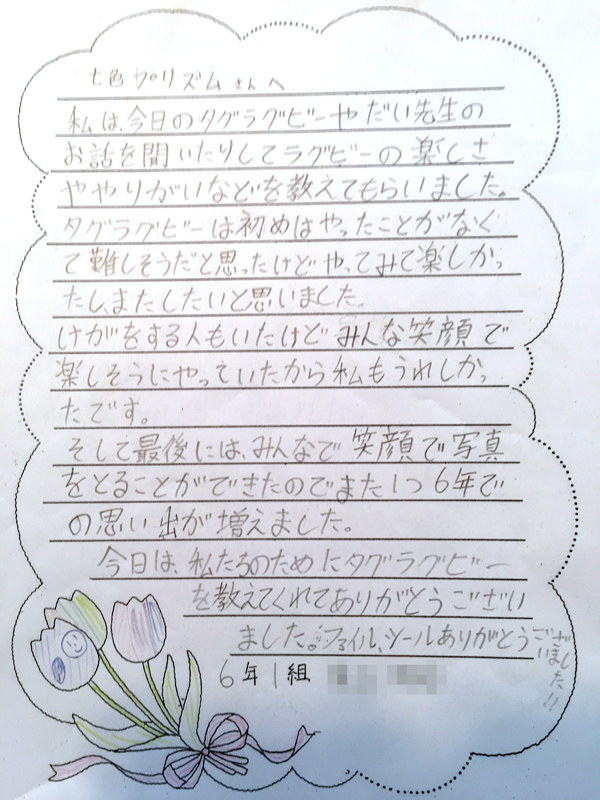 七色プリズムさんへ
私は、今日のタグラグビーやだい先生の
お話を聞いたりしてラグビーの楽しさ
ややりがいなどを教えてもらいました。
タグラグビーは初めはやったことがなく
て難しそうだと思ったけどやってみて楽しかっ
たし、またしたいと思いました。
けがをする人もいたけどみんな笑顔で
楽しそうにやっていたから私もうれしかっ
たです。
そして最後には、みんなで笑顔で写真
をとることができたのでまた1つ6年で
の思い出が増えました。
今日は、私たちのためにタグラグビー
を教えてくれてありがとうござい
ました。ファイル、シールありがとうございました!!
6年1組